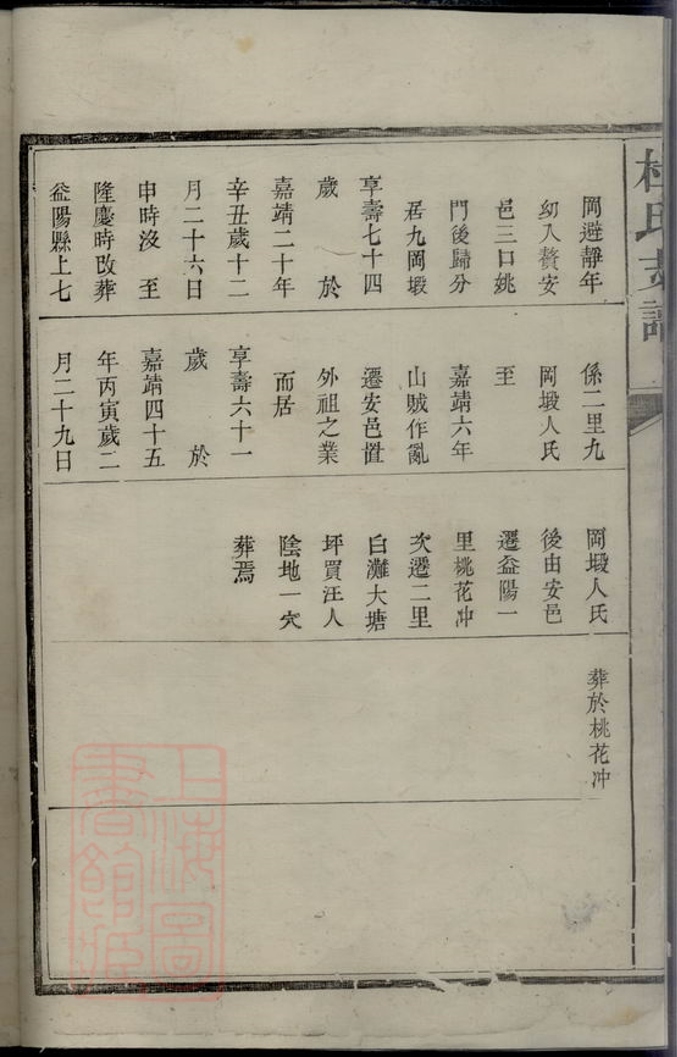 杜氏支譜
岡避靜年
幼入贅安
邑三口姚
門後歸分
居九岡塅
享壽七十四
歲於
嘉靖二十年
辛丑歲十二
月二十六日
申時沒至
隆慶時改葬
益陽縣上七
係二里九
岡塅人氏
至
嘉靖六年
山賊作亂
遷安邑置
外祖之業
而居
享壽六十一
歲於
嘉靖四十五
年丙寅歲二
月二十九日
岡塅人氏
後由安邑
遷益陽一
里桃花冲
次遷二里
白灘大塘
坪買汪人
陰地一穴
葬焉
葬於桃花冲
上海圖
書館藏